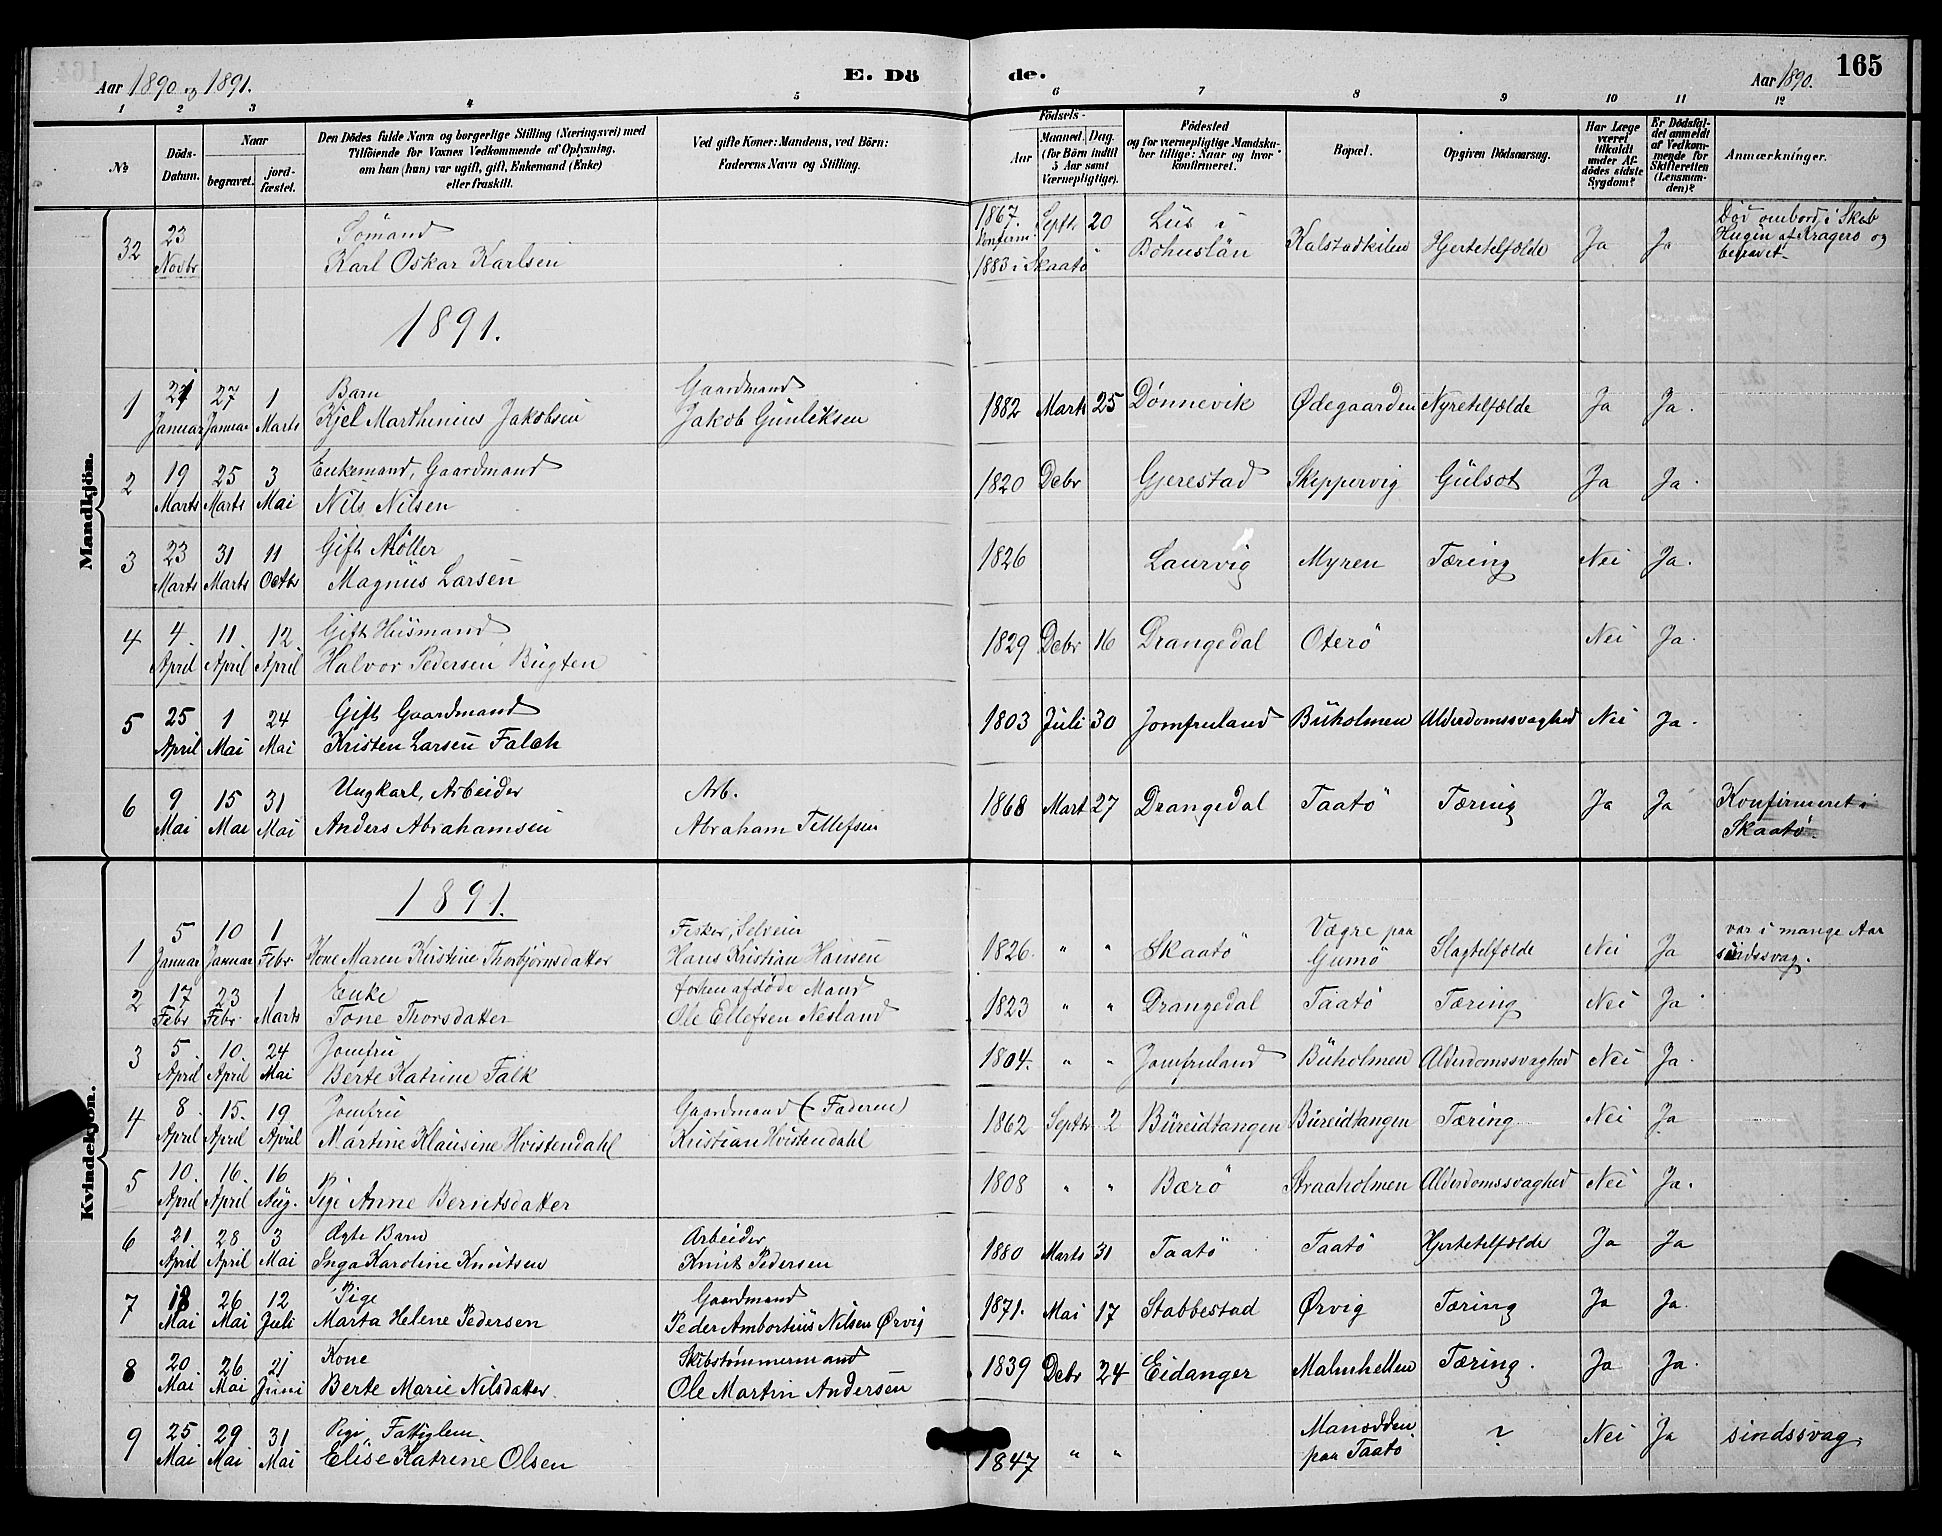 Aar 1890 og 1891.
E. Dö de.
Aar 1890.
165
1 2 3 4 5 6 7 8 9 10 11 12
No
Döds-Datum.
Naar
begravet.
jord-fæstet.
Den Dödes fulde Navn og borgerlige Stilling (Næringsvei) med
Tilföiende for Voxnes Vedkommende af Oplysning,
om han (hun) var ugift, gift, Enkemand (Enke)
eller fraskilt.
Ved gifte Koner: Mandens, ved Börn:
Faderens Navn og Stilling.
Födsels-
Aar
Maaned. Dag.
(for Börn indtil
5 Aar samt
Værnepligtige).
Födested
og for værnepligtige Mandska-
ber tillige: Naar og hvor
konfirmeret.
Bopæl.
Opgiven Dödsaarsag.
Har Læge
været
tilkaldt
under Af-
dödes sidste
Sygdom?
Er Dödsfal-
det anmeldt
af Vedkom-
mende for
Skifteretten
(Lensman-
den)?
Anmærkninger.
Mandkjön.
32 23 Novbr Sömand Karl Oskar Karlsen 1867 Konfirm 1883 i Skaatö Septr 20 Lus i Bohuslän Kalstadkilen Hjertetelfælde Ja Ja Död ombord i Skib Hugin af Kragerö og begravet
1891.
1 21 Januar 27 Januar 1 Marts Barn Kjel Marthinius Jakobsen Gaardmand Jakob Gunleksen 1882 Marts 25 Dønnevik Ødegaarden Nyretelfælde Ja Ja.
2 19 Marts 25 Marts 3 Mai Enkemand, Gaardmand Nils Nilsen 1820 Debr Gjerestad Skeppervig Gülsot Ja Ja.
3 23 Marts 31 Marts 11 Octbr Gift Möller Magnüs Larsen 1826 Laurvig Myren Tæring Nei Ja.
4 4 April 11 April 12 April Gift Hüsmand Halvor Pedersen Bügten 1829 Debr 16 Drangedal Oterö Nei Ja.
5 25 April 1 Mai 24 Mai Gift Gaardmand Kristen Larsen Falch 1803 Juli 30 Jomfruland Büholmen Alderdomssvaghed Nei Ja.
6 9 Mai 15 Mai 31 Mai Ungkarl, Arbeider Anders Abrahamsen Arb. Abraham Tellefsen 1868 Mart 27 Drangedal Taatö Tæring Ja Ja Konfirmeret i Skaatö.
Kvindekjön.
1891.
1 5 Januar 10 Januar 1 Febr Kone Maren Kirstine Thorbjörnsdatter Fisker, Selveier Hans Kristian Hansen 1826. " " Skaatö Vægre paa Gumö Slagtelfælde Nei Ja var i mange Aar sindssvag.
2 17 Febr 23 Febr. 1 Marts Enke Tone Thorsdatter forhen afdöde Mand Ole Ellefsen Nesland 1823 " " Drangedal Taatö Tæring Nei Ja
3 5 April 10 April 24 Mai Jomfrü Berte Katrine Falk 1804. " " Jomfruland Büholmen Alderdomssvaghed Nei Ja.
4 8 April 15. April 19 April Jomfrü Martine Klausine Hvistendahl Gaardmand (Faderen) Kristian Hvistendahl 1862 Septbr 2 Büreidtangen Büreidtangen Tæring Nei Ja
5 10. April 16. April 16 Aüg. Pige Anne Berntsdatter 1808 " " Bærö Straaholmen Alderdomssvaghed Nei Ja.
6 21 April 28 April 3 Mai Ægte Barn Inga Karoline Knütsen Arbeider Knüt Pedersen 1880 Marts 31 Taatö Taatö Hjertetelfælde Ja Ja
7 18 Mai 26 Mai 12 Juli Pige Marta Helene Pedersen Gaardmand Peder Ambortiüs Nilsen Ørvig 1871. Mai 17 Stabbestad Ørvig Tæring Ja Ja.
8 20 Mai 26 Mai 21 Juni Kone Berte Marie Nilsdatter Skibstömmermand Ole Martin Andersen 1839 Debr 24 Eidanger Malmhellen Tæring. Ja Ja.
9 25 Mai 29 Mai 31 Mai Pige, Fattiglem Elise Katrine Olsen 1847 " " Mansodden paa Taatö ? Nei Ja sindssvag.